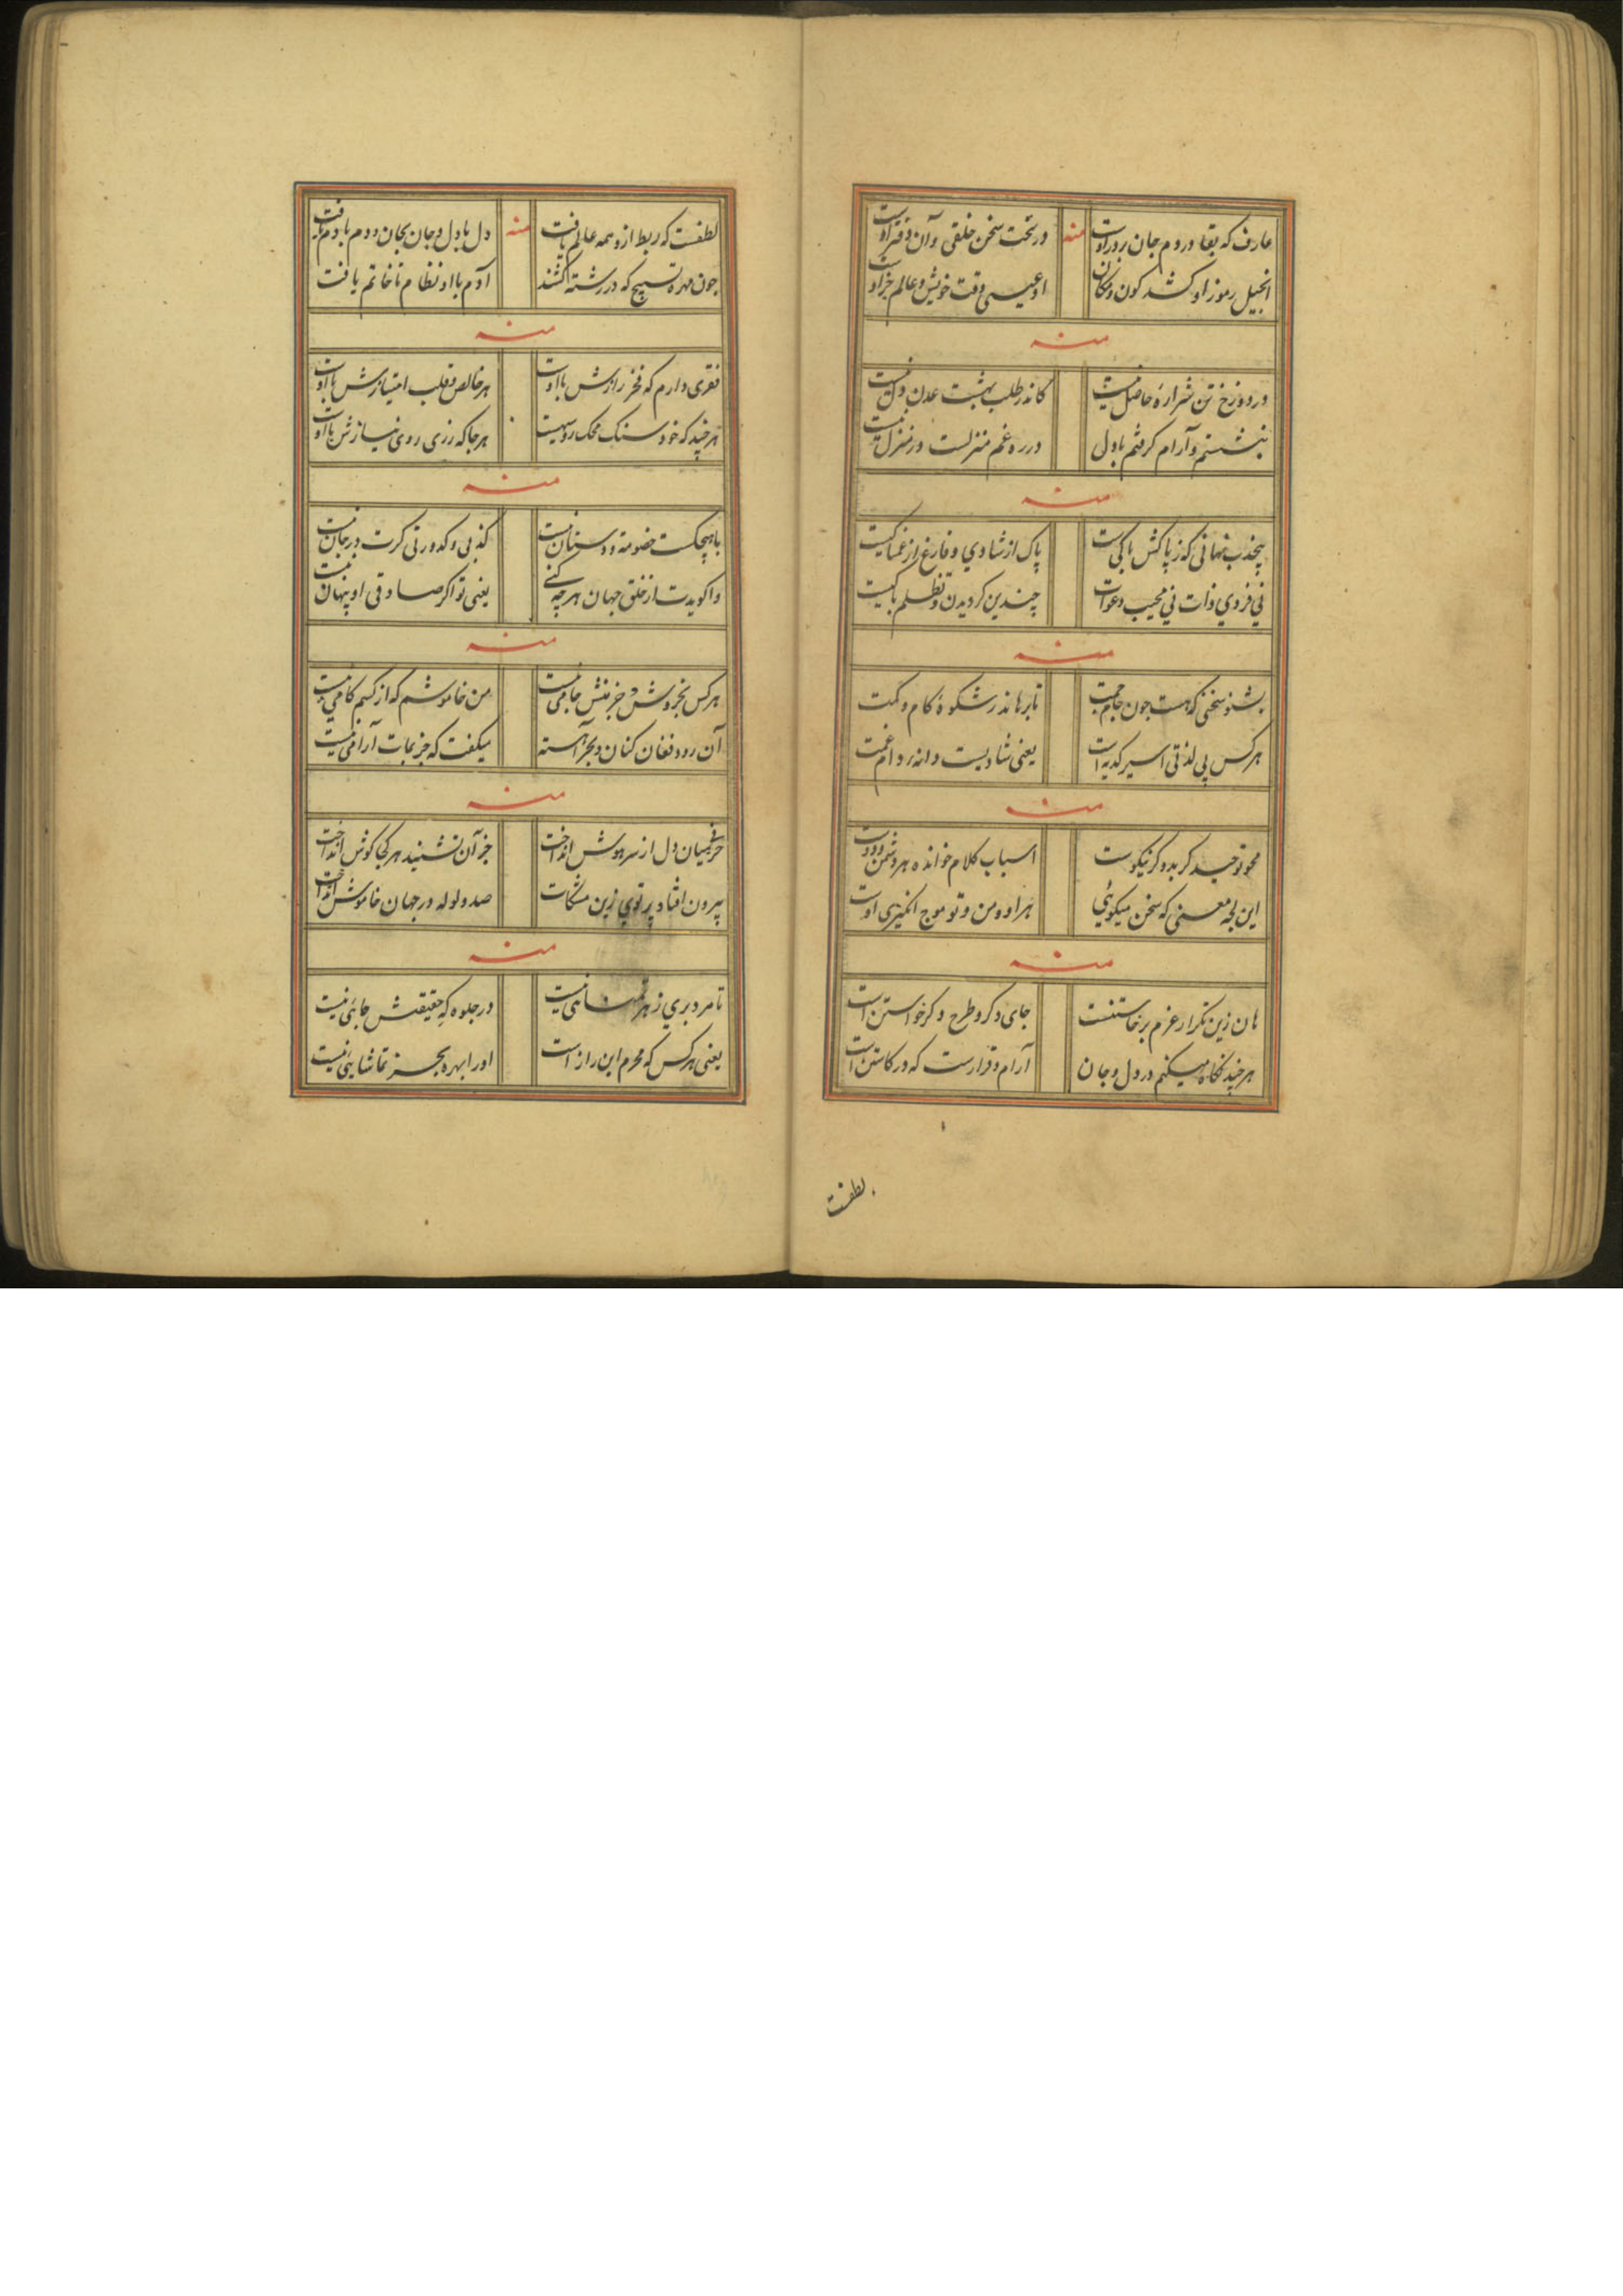 عارف که بقا در دم جان پرور اوست منه در تخت سخن خلقی و آن دفتر اوست
انجیل رموز او کشد کون و مکان او عیسی وقت خویش و عالم خر اوست
منه
در دوزخ تن شراره حاصل نیست کاندر طلب بهشت عدن دل نیست
ننشستم و آرام گرفتم با دل در ره غم منزلست و در منزل نیست
منه
نهانی که ز پاکش پاکیست پاک از شادی و فارغ از غمناکیست
نی فردی ذات نی مجیب دعوات چندین گردیدن و تظلم
منه
بشنو سخنی که هست چون جام جمت تا برهاند ز شکوه کام و کمت
هر کس پی لذتی اسیر کدیه است یعنی شادیست دانه و دام غمت
منه
محو توحید گر بد و گر نیکوست اسباب کلام خوانده هر دشمن و دوست
این لجه معنی که سخن میگوئی هر او و من و تو موج انگیزی اوست
منه
هان زین تکرار عزم برخاستنست جای دگر و طرح دگر خواستن است
هر چند نگاه میکنم در دل و جان آرام و قرارست که در کاستن است
لطفست
لطفست که ربط ازو همه عالم یافت منه دل با دل و جان بجان و دم با دم یافت
چون مهره تسبیح که در رشته کشند آدم با او نظام تا خاتم یافت
منه
فقری دارم که فخر رازش با اوست هر خالص و قلب امتیازش با اوست
هر چند که خود سنک محک روسیهست هر جا که زری روی نیازش با اوست
منه
با هیچکست خصومة و دستان نیست کذبی و کدورتی کرت در جان نیست
واگویدت از خلق جهان هر چه کنی یعنی تو اگر صادقی او پنهان نیست
منه
هر کس بخروش و جز منش جامی نیست من خاموشم که از کسم کامی نیست
آن رود فغان کنان و بحر آهسته میگفت که جز بمات آرامی نیست
منه
حرفی بمیان دل از سر هوش انداخت جز آن نشنید هر کجا گوش انداخت
بیرون افتاد پرتوی زین مشکات صد ولوله در جهان خاموش انداخت
منه
تا مرد بری ز هر نیست در جلوه که حقیقتش جائی نیست
یعنی هر کس که محرم این راز است او را بهره بجز تماشایی نیست